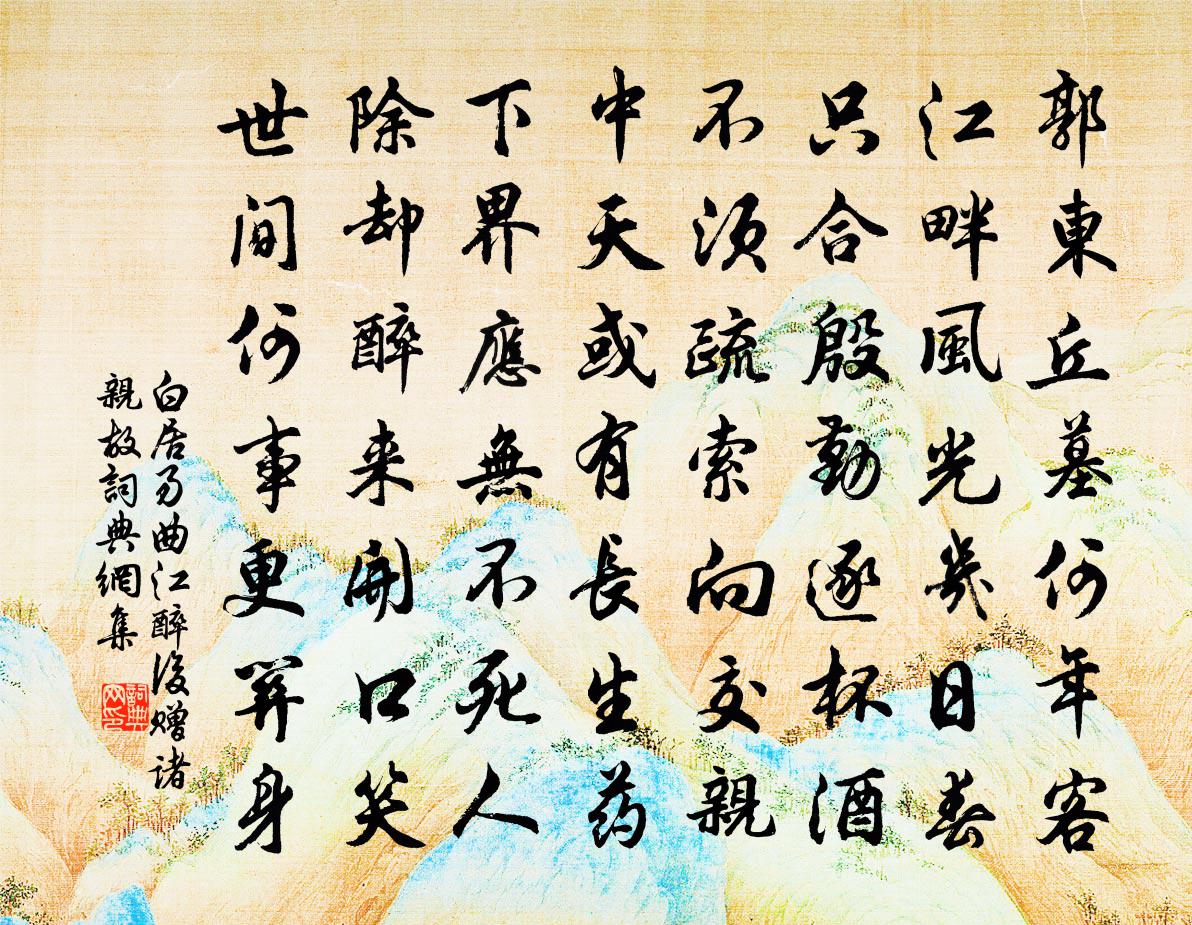 郭東丘墓何年客
江畔風光幾日春
只合殷勤逐杯酒
不須疏索向交親
中天或有長生药
下界應無不死人
除却醉来開口笑
世間何事更關身
白居易曲江醉後赠諸
親故詞典網集
詞典
网印